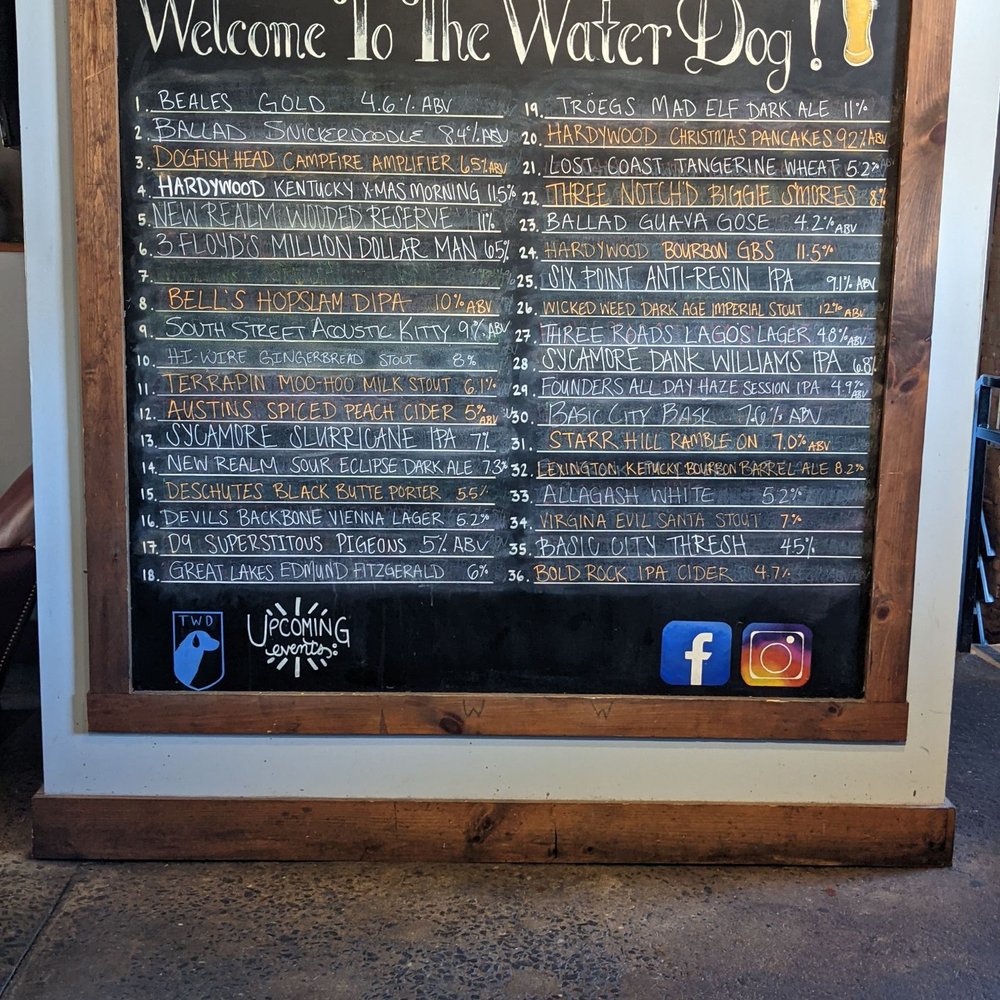 Welcome To The Water Dog!
1. BEALES GOLD 4.6% ABV
2. BALLAD SNICKERDOODLE 8.4% ABV
3. DOGFISH HEAD CAMPFIRE AMPLIFIER 6.5% ABV
4. HARDYWOOD KENTUCKY X-MAS MORNING 11.5%
5. NEW REALM WOODED RESERVE 11%
6. 3 FLOYD'S MILLION DOLLAR MAN 65%
7.
8. BELL'S HOPSLAM DIPA 10% ABV
9. SOUTH STREET ACOUSTIC KITTY 9% ABV
10. HI-WIRE GINGERBREAD STOUT 8%
11. TERRAPIN MOO-HOO MILK STOUT 6.1%
12. AUSTINS SPICED PEACH CIDER 5% ABV
13. SYCAMORE SLURRICANE IPA 7%
14. NEW REALM SOUR ECLIPSE DARK ALE 7.3%
15. DESCHUTES BLACK BUTTE PORTER 5.5%
16. DEVILS BACKBONE VIENNA LAGER 5.2%
17. D9 SUPERSTITOUS PIGEONS 5% ABV
18. GREAT LAKES EDMUND FITZGERALD 6%
19. TRÖEGS MAD ELF DARK ALE 11%
20. HARDYWOOD CHRISTMAS PANCAKES 9.2% ABV
21. LOST COAST TANGERINE WHEAT 5.2% ABV
22. THREE NOTCH'D BIGGIE S'MORES 8%
23. BALLAD GUAVA GOSE 4.2% ABV
24. HARDYWOOD BOURBON GBS 11.5%
25. SIX POINT ANTI-RESIN IPA 9.1% ABV
26. WICKED WEED DARK AGE IMPERIAL STOUT 12% ABV
27. THREE ROADS LAGOS LAGER 4.8% ABV
28. SYCAMORE DANK WILLIAMS IPA 6.8%
29. FOUNDERS ALL DAY HAZE SESSION IPA 4.9% ABV
30. BASIC CITY BASK 7.6% ABV
31. STARR HILL RAMBLE ON 7.0% ABV
32. LEXINGTON KETUCKY BOURBON BARREL ALE 8.2%
33. ALLAGASH WHITE 5.2%
34. VIRGINA EVIL SANTA STOUT 7%
35. BASIC CITY THRESH 45%
36. BOLD ROCK IPA CIDER 4.7%
TWD
UPCOMING
events:
f